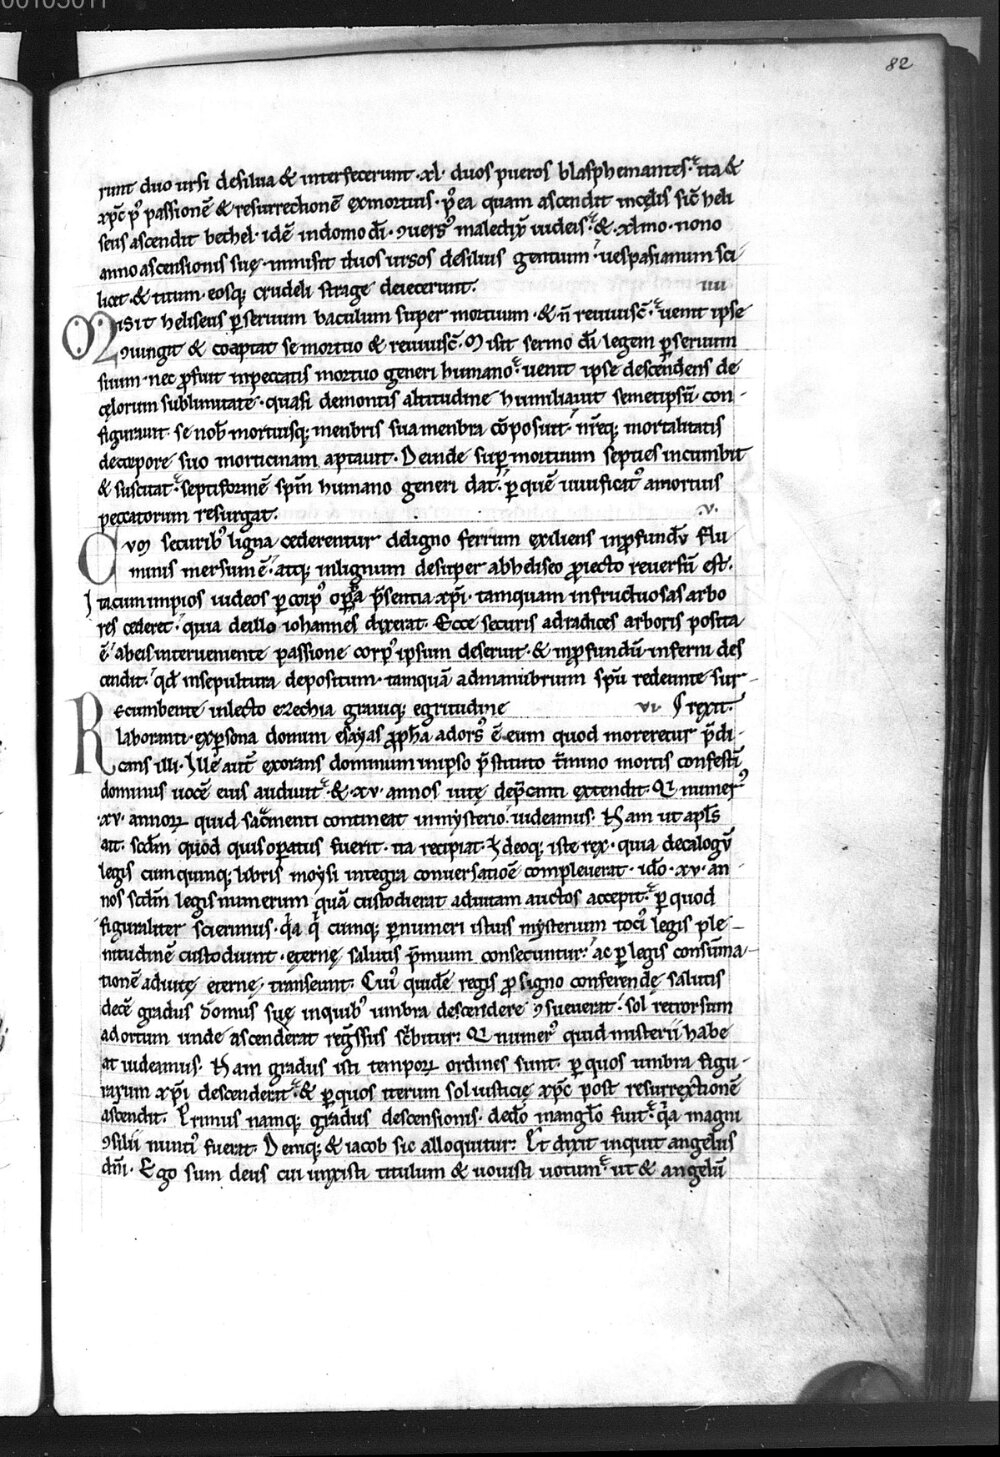 00105011
82
runt duo ursi desilua & interfecerunt · xl · duos pueros blasphemantes · ita &
xp̄c p᷒ passionē & resurrectionē exmortuis · p᷒ea quam ascendit incęlis sic̄ heli
seus ascendit bethel · idē indomo dī · ꝯuers᷒ maledixit iudeis · & xlmo · nono
anno ascensionis suę · inmisit duos ursos desiluis gentium · uespasianum sci-
licet · & titum · eosq; crudeli strage deiecerunt.
iiii
Misit heliseus ꝑseruum baculum super mortuum · & n̄ reuiuisc̄ · uenit ipse
ꝯiungit & coaptat se mortuo & reuiuisc̄ · Misit sermo dī legem ꝑseruum
suum · nec ꝓfuit inpeccatis mortuo generi humano · uenit ipse descendens de
cęlorum sublimitate · quasi demontis altitudine humiliauit semetipsū · con-
figurauit se nob̄ mortuisq; menbris sua menbra cōposuit · nr̄ęq; mortalitatis
decorpore suo morticinam aptauit · Deinde suꝑ mortuum septies incumbit
& suscitat · septiformē spīn humano generi dat · ꝑ quē uiuificat᷒ amortuis
peccatorum resurgat.
.v.
Cum securib᷒ ligna cederentur deligno ferrum exiliens inꝓfundū flu
minis mersum ē · atq; inlignum desuper abheliseo ꝓiecto reuersū est.
Itacum impios iudeos ꝑ corp᷒ oꝑa p̄sentia xp̄i · tamquam infructuosas arbo
res cederet · quia deillo iohannes dixerat · Ecce securis adradices arboris posita
ē · abeis interueniente passione corp᷒ ipsum deseruit · & inꝓfundū inferni des
cendit · qd̄ insepultura depositum · tamquā admanubrium spū redeunte sur-
Recumbente inlecto ezechia grauiq; egritudine
vi
rexit.
laboranti · exꝑsona domini esayas ꝓph̄a adors᷒ ē eum quod moreretur p̄di-
cans illi · Ille aut̄ exorans dominum inipso p̄stituto t̄mino mortis confestī
dominus uocē eius audiuit · & xv · annos uitę dep̄canti extendit · Qi numer᷒
· xv · annoꝝ quid sac̄menti contineat inmysterio uideamus · Nam ut apl̄s
ait · scdm̄ quod quis oꝑatus fuerit · ita recipiat · Ideoq; iste rex · quia decalogū
legis cum quinq; libris moysi integra conuersatioē compleuerat · ido · xv · an
nos scdm̄ legis numerum quā custodierat aduitam auctos accepit · ꝑ quod
figuraliter sciremus · qia qi cumq; ꝑnumeri istius mysterium toci᷒ legis ple-
nitudinē custodiunt · ęternę salutis p̄mium consecuntur · ac ꝑ legis consūma-
tionē aduitę ęternę transeunt · Cui᷒ quidē regis ꝓ signo conferendę salutis
decē gradus domus suę inquib᷒ umbra descendere ꝯsueuerat · sol retrorsum
adortum unde ascenderat reg̃ssus sc̄bitur · Qi numer᷒ quid misterii habe
at uideamus · Nam gradus isti tempoꝝ ordines sunt · ꝑ quos umbra figu-
rarum xp̄i descenderit · & ꝑ quos iterum sol iusticię xp̄c post resurrectionē
ascendit · Primus namq; gradus descensionis · dedō inangelō fuit · qia magni
ꝯsilii nunti᷒ fuerit · Deniq; & iacob sic alloquitur · Et dixit inquit angelus
dn̄i · Ego sum deus cui unxisti titulum & uouisti uotum · ut & angelū